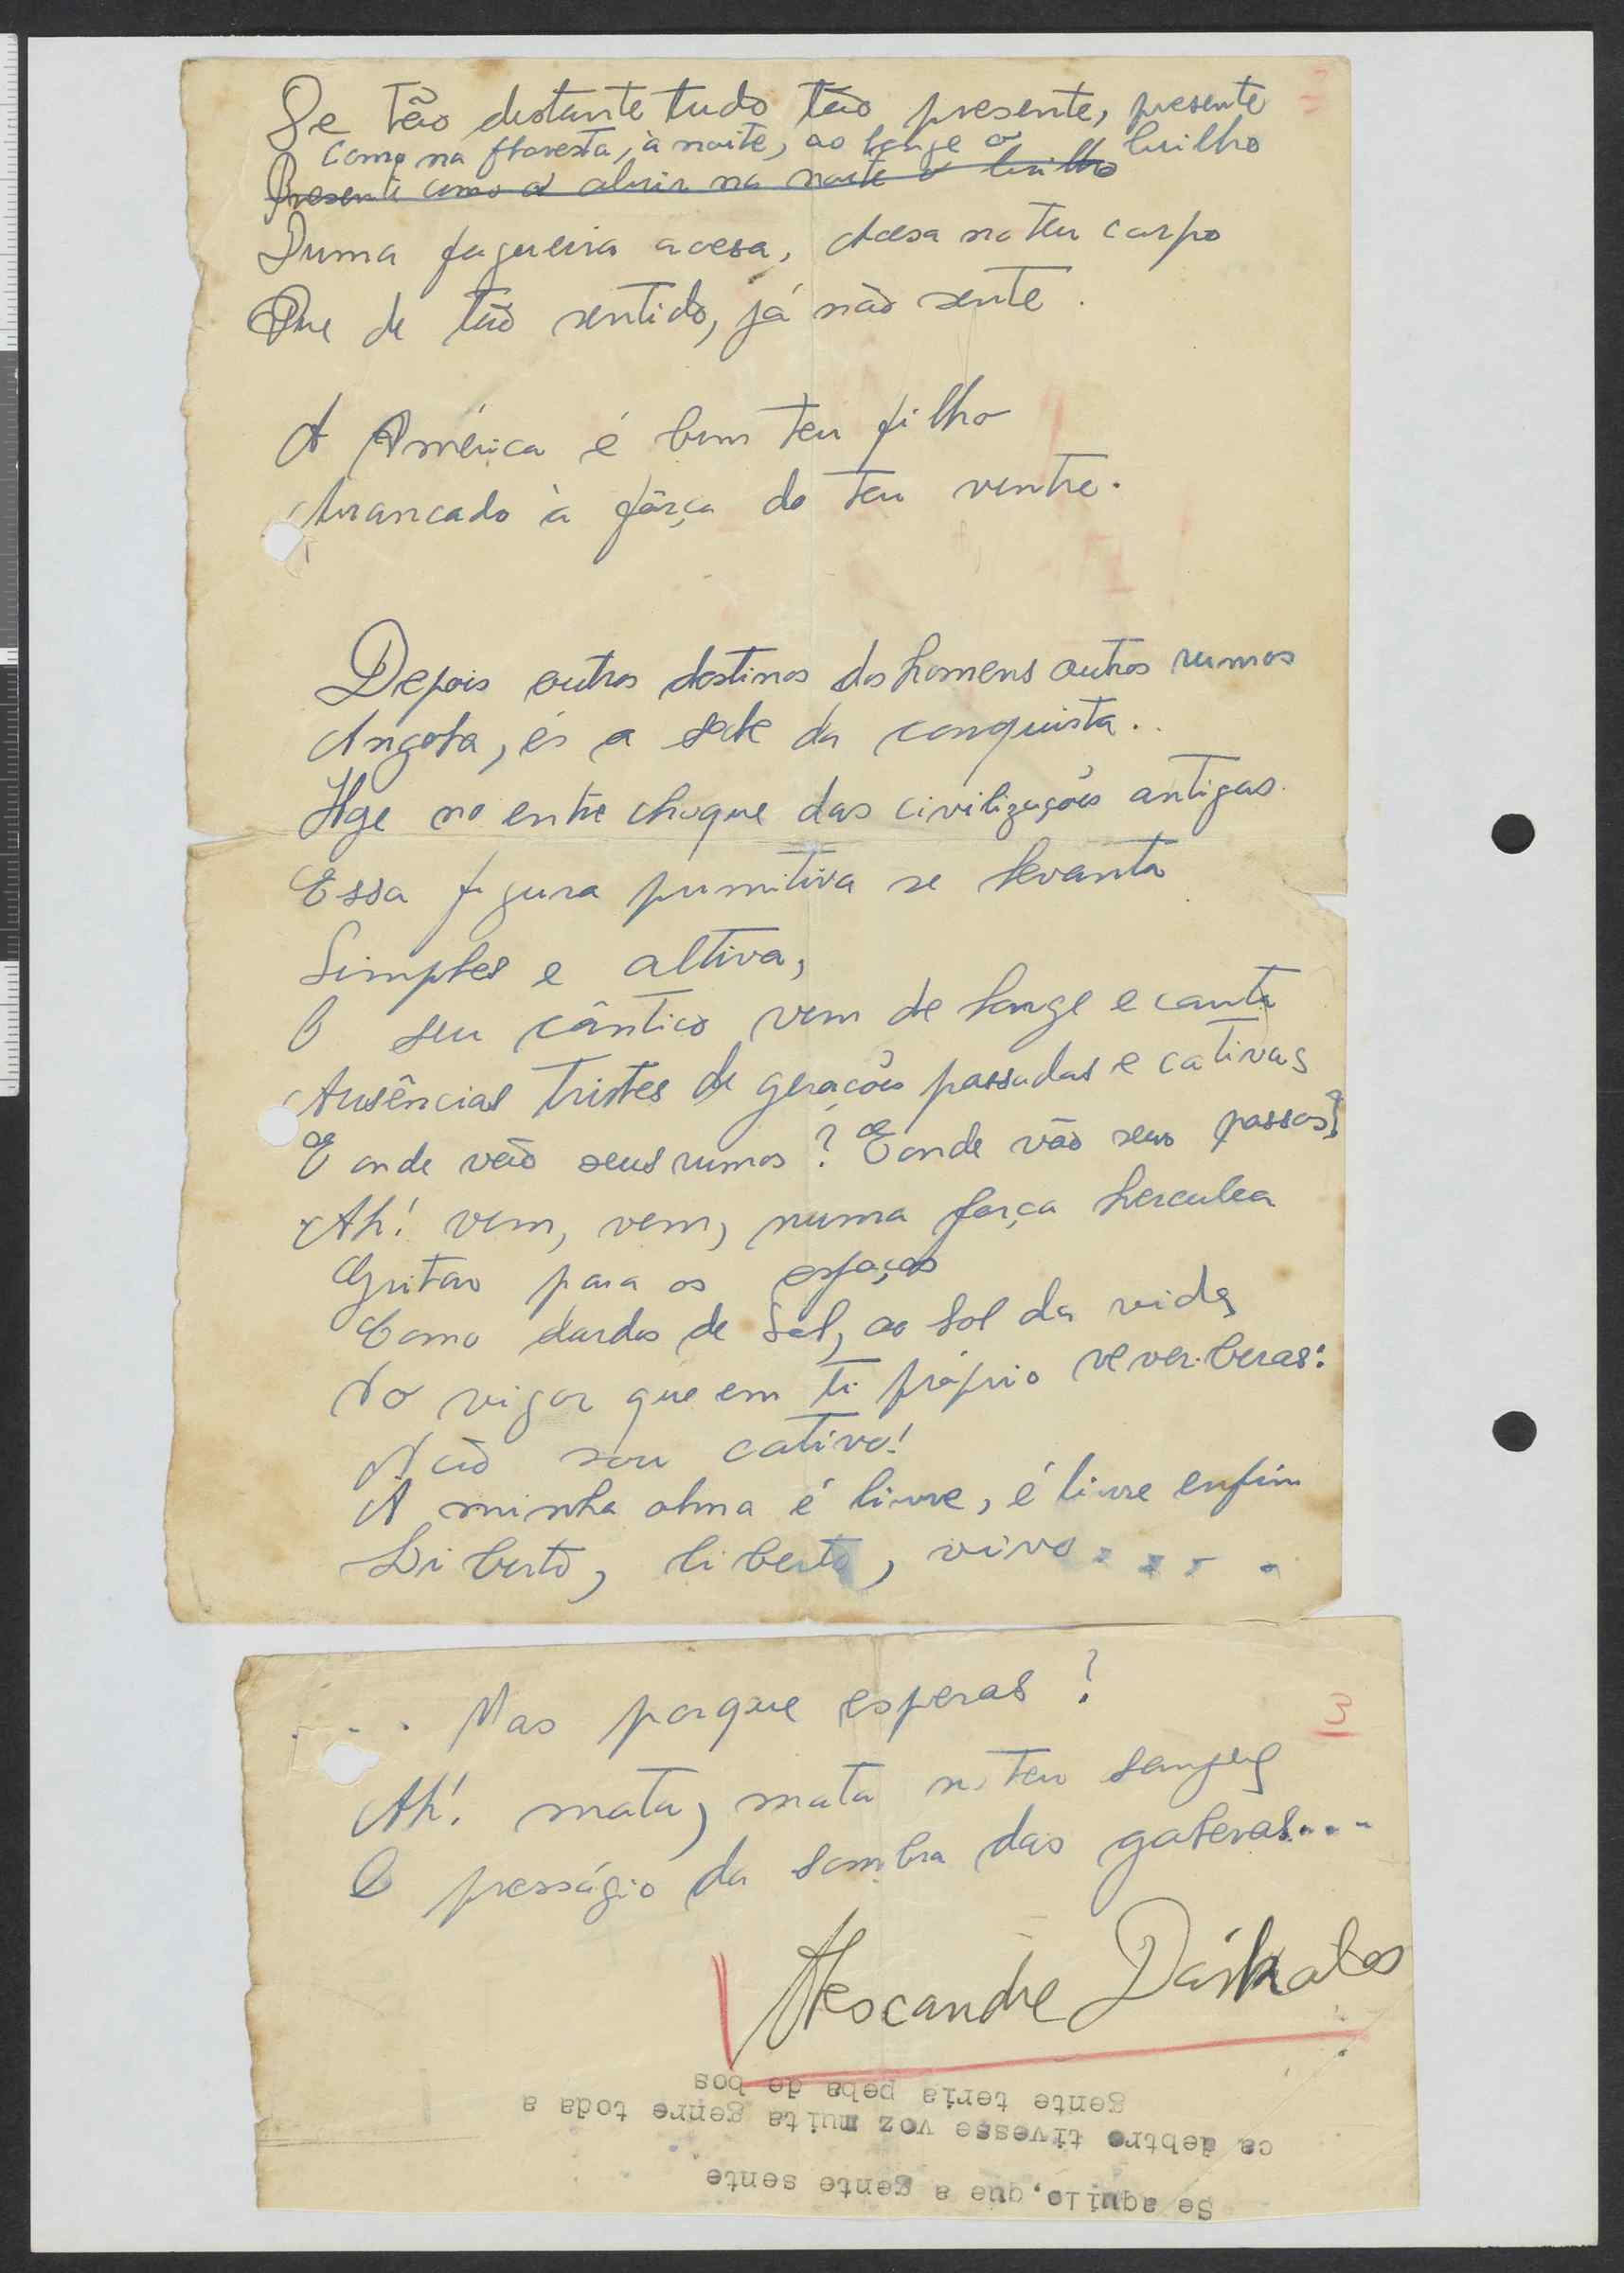 De tão distante tudo tão presente, presente
como na floresta, à noite, ao longe o brilho
Presente como o abrir na noite o brilho
Duma fogueira acesa, Acesa no teu corpo
Que de tão sentido, já não sente.
A América é bem teu filho
Arrancado à fôrça do teu ventre.
Depois outros destinos dos homens outros rumos
Angola, és a sede da conquista..
Hoje no entre choque das civilizações antigas.
Essa figura primitiva se levanta
Simples e altiva,
O seu cântico vem de longe e canta
Ausências tristes de gerações passadas e cativas
E onde vão seus rumos? E onde vão seus passos?
Ah! vem, vem, numa força herculea
Gritar para os espaços
Como dardos de Sol, ao sol da vida
No vigor que em ti próprio reverberas:
Não sou cativo!
A minha alma é livre, é livre enfim
Liberto, liberto, vivo....
... Mas porque esperas?
3
Ah! mata, mata no teu sangue
O presságio da sombra das galeras....
Alexandre Dáskalos
Se aquilo,que a gente sente
ca debtro tivesse voz muita genre toda a
gente teria peba de bos